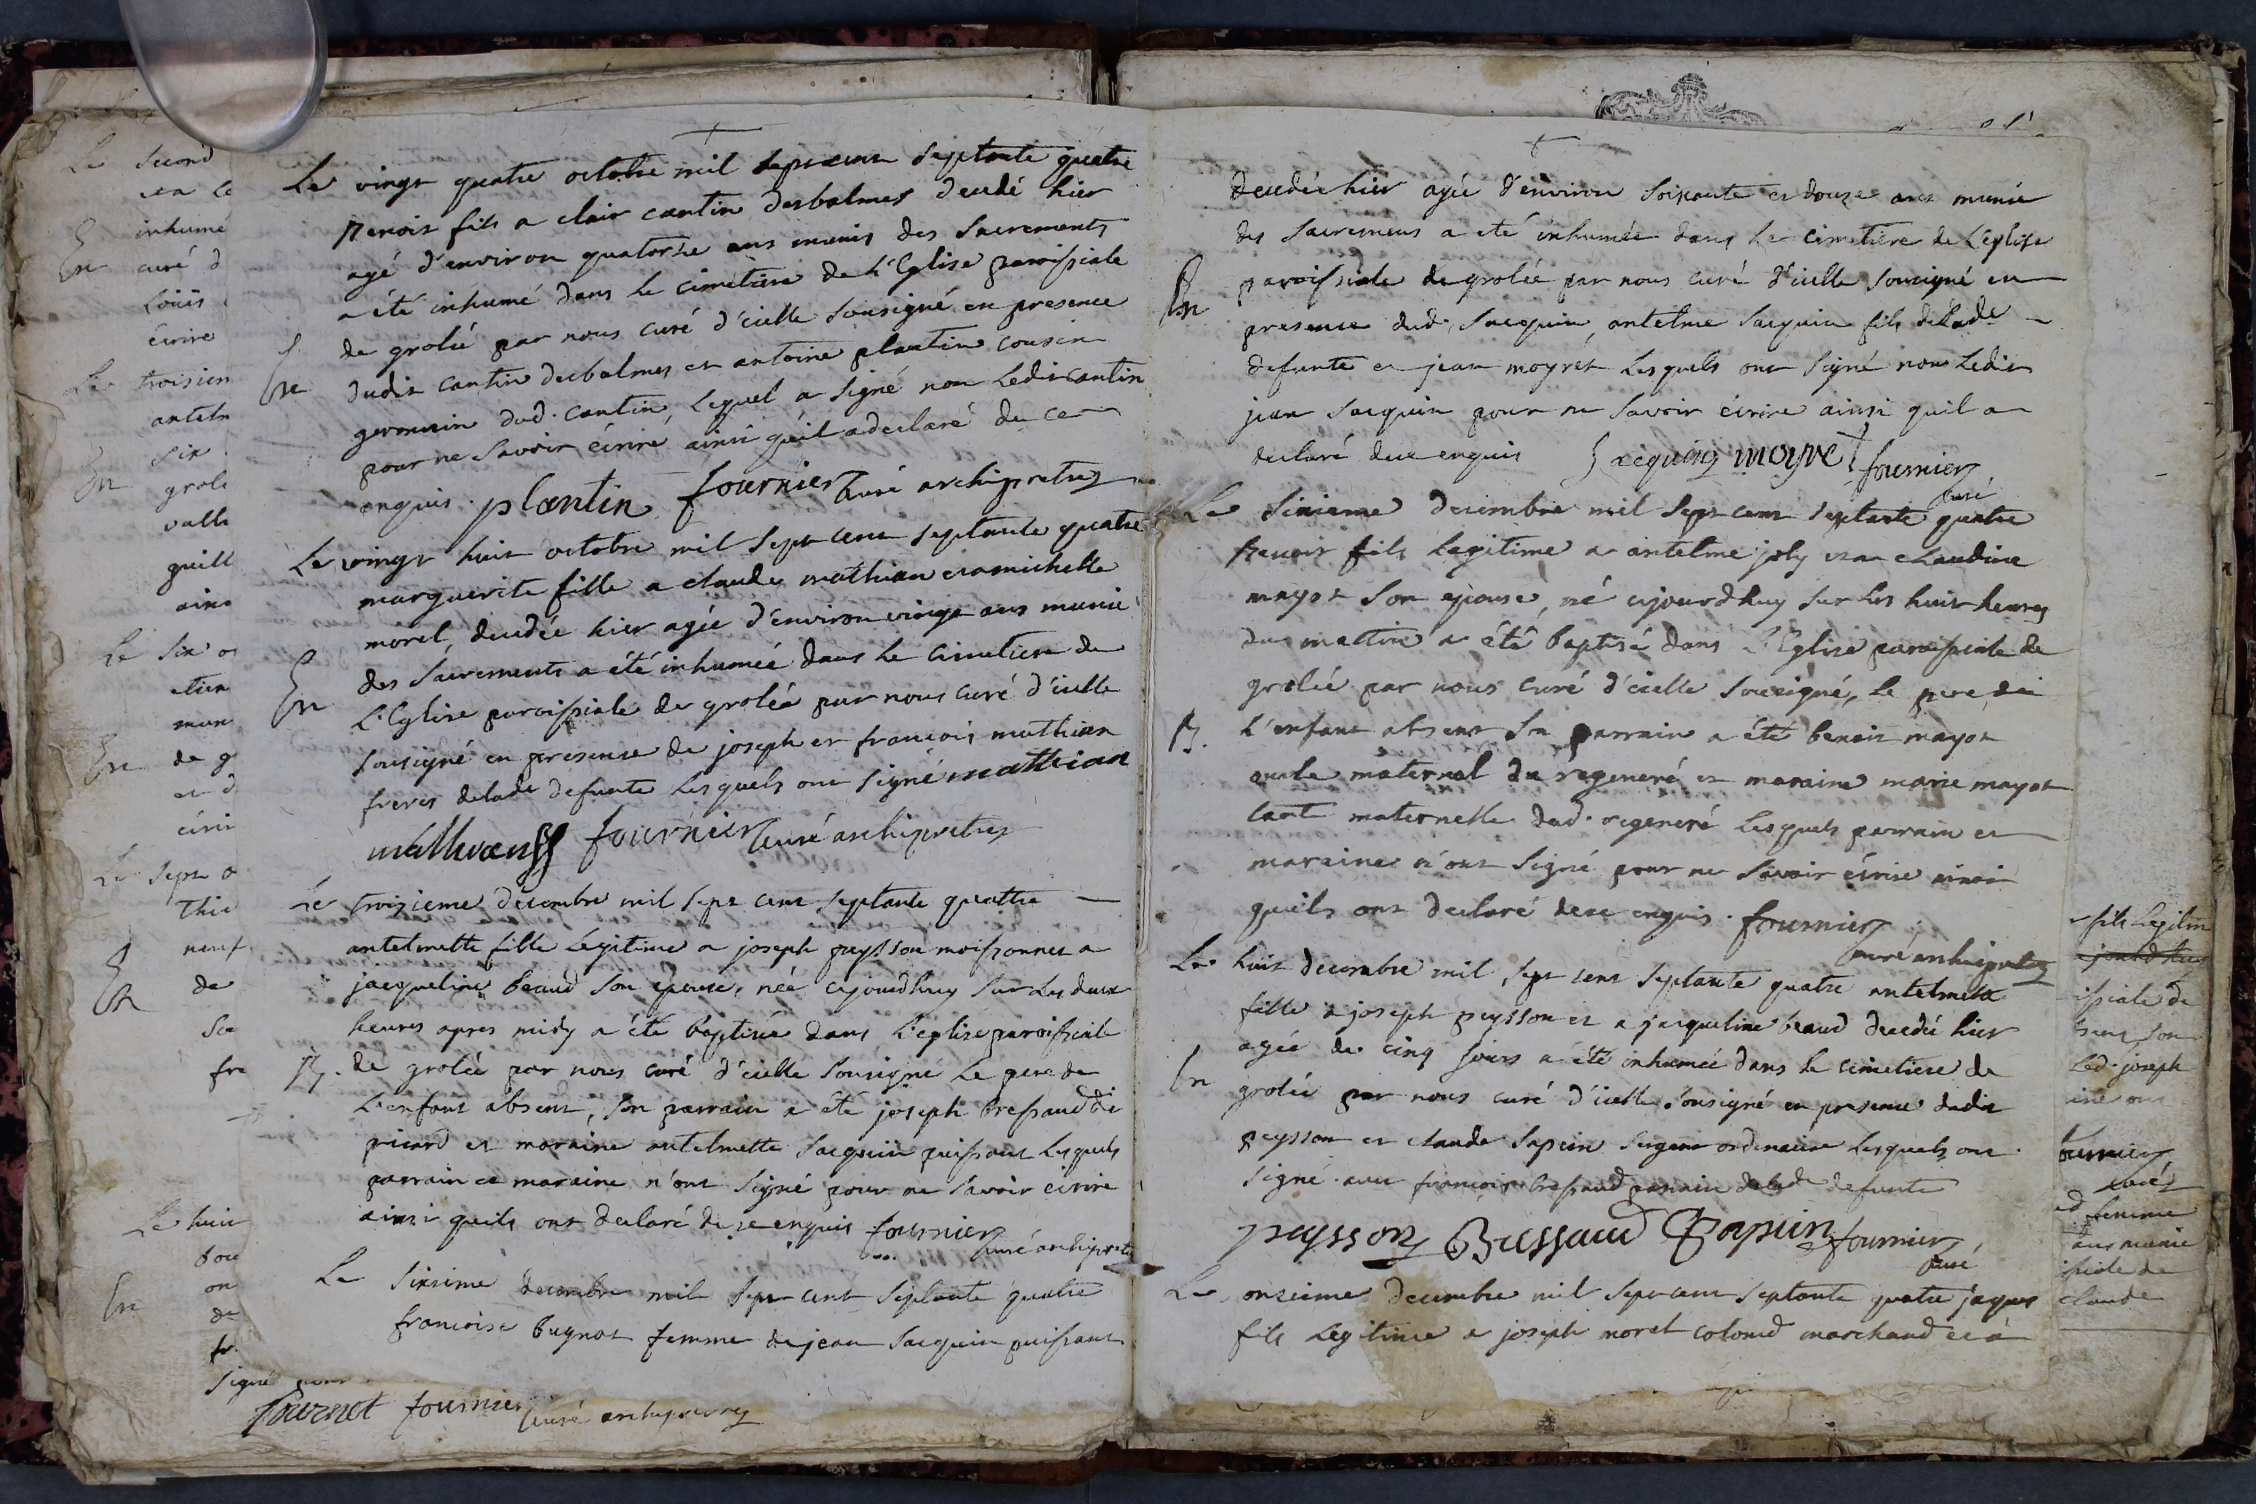 Le vingt quatre octobre mil sept cent septante quatre
Benoit fils a clair cantin desbalmes decedé hier
agé d'environ quatorze ans munis des Sacrements
a été inhumé dans le cimetiere de l'Eglise paroissiale
de grolée par nous curé d'icelle Sousigné en presence
En
dudit cantin desbalmes et antoine plantin cousin
germain dud. cantin, lequel a signé non ledit cantin
pour ne Savoir écrire ainsi qu'il a declaré de ce
enquis. plantin fournier curé archipretre
Le vingt huit octobre mil sept cent septante quatre
marguerite fille a claude mathian et a michelle
morel, decedée hier agée d'environ vingt ans munie
des Sacrements a été inhumée dans le cimetiere de
En
L'Eglise paroissiale de grolée par nous curé d'icelle
sousigné en presence de joseph et francois mathian
freres de lade defunte lesquels ont signé mathian
mathian fournier curé archipretre
Le troisieme decembre mil sept cent septante quattre
antelmette fille legitime a joseph peysson moissonnet a
jacqueline beaud son epouse, née ajourdhuy sur les deux
heures apres midy a été baptisée dans l'eglise paroissiale
B.
de grolée par nous curé d'icelle sousigné le pere de
L'enfant absent, son parrain a été joseph bressaud dit
picard et maraine antelmette Jacquin puissant lesquels
parrain et maraine n'ont signé pour ne savoir ecrire
ainsi quils ont declaré de ce enquis fournier
curé archipretre
Le Sixsime decembre mil sept cent septante quatre
francoise bugnot femme de jean Jacquin puissant
decedée hier agée d'environ soixante et douze ans munie
des Sacremens a été inhumée dans le cimetiere de L'église
En
paroissiale de grolée par nous curé d'icelle Sousigné en
presence dud. Jacquin, antelme Jacquin fils de lade
defunte et jean moyret lesquels ont signé non ledit
jean Jacquin pour ne savoir écrire ainsi quil a
declaré de ce enquis Jacquin moyret fournier
curé
Le Sixieme decembre mil Sept cent septante quatre
benoit fils legitime a antelme joly et a claudine
mayot Son epouse, né ajourdhuy sur les huit heures
du mattin a été baptisé dans l'Eglise paroissiale de
grolée par nous curé d'icelle sousigné, le pere de
B.
L'enfant absent son parrain a été benoit mayot
oncle maternel du regeneré et maraine marie mayot
tante maternelle dud. regeneré lesquels parrain et
maraine n'ont signé pour ne savoir écrire ainsi
quils ont declaré de ce enquis. fournier
curé archipretre
Le huit decembre mil sept cent septante quatre antelmette
fille a joseph peysson et a jacqueline beaud decedée hier
agée de cinq jours a été inhumée dans le cimetiere de
En
grolée par nous curé d'icelle sousigné en presence dudit
peysson et claude papin sergent ordinaire lesquels ont
signé avec francois bressaud parrain de lade defunte
peysson Bressaud Papin fournier
curé
Le onzieme decembre mil sept cent septante quatre jaques
fils legitime a joseph moret colomb marchand et a
Le Second
inhumé
En curé d
Loüis
écrire
Le troisiem
antelm
six
En grolé
guill
Le six
de g
Le sept
de
fre
Le huit
En
de
signé pour
fournet fournier curé archipretre
fils legitim
ajourdhuy
issiale de
Led. joseph
fournier
curé
femme
ans munie
issiale de
claude